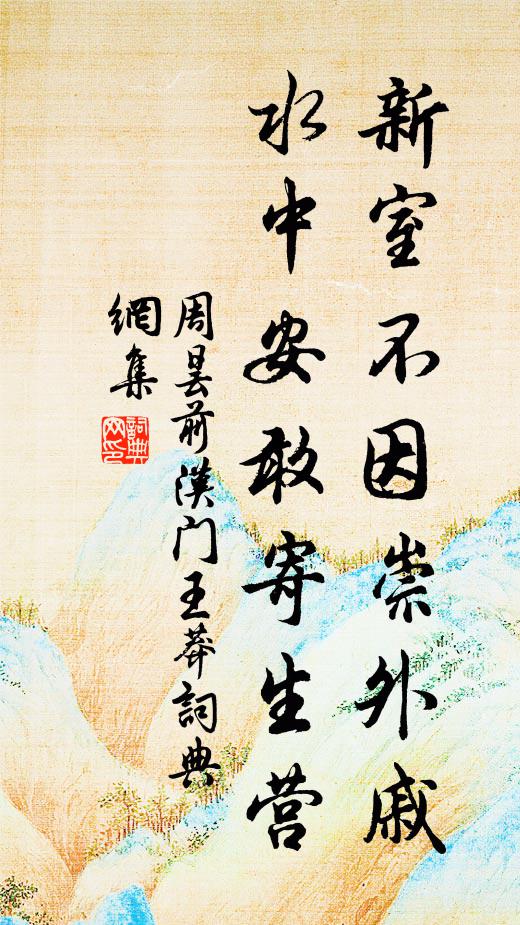 新室不因崇外戚
水中安敢寄生营
周昙前汉门王莽词典
網集
詞典网印